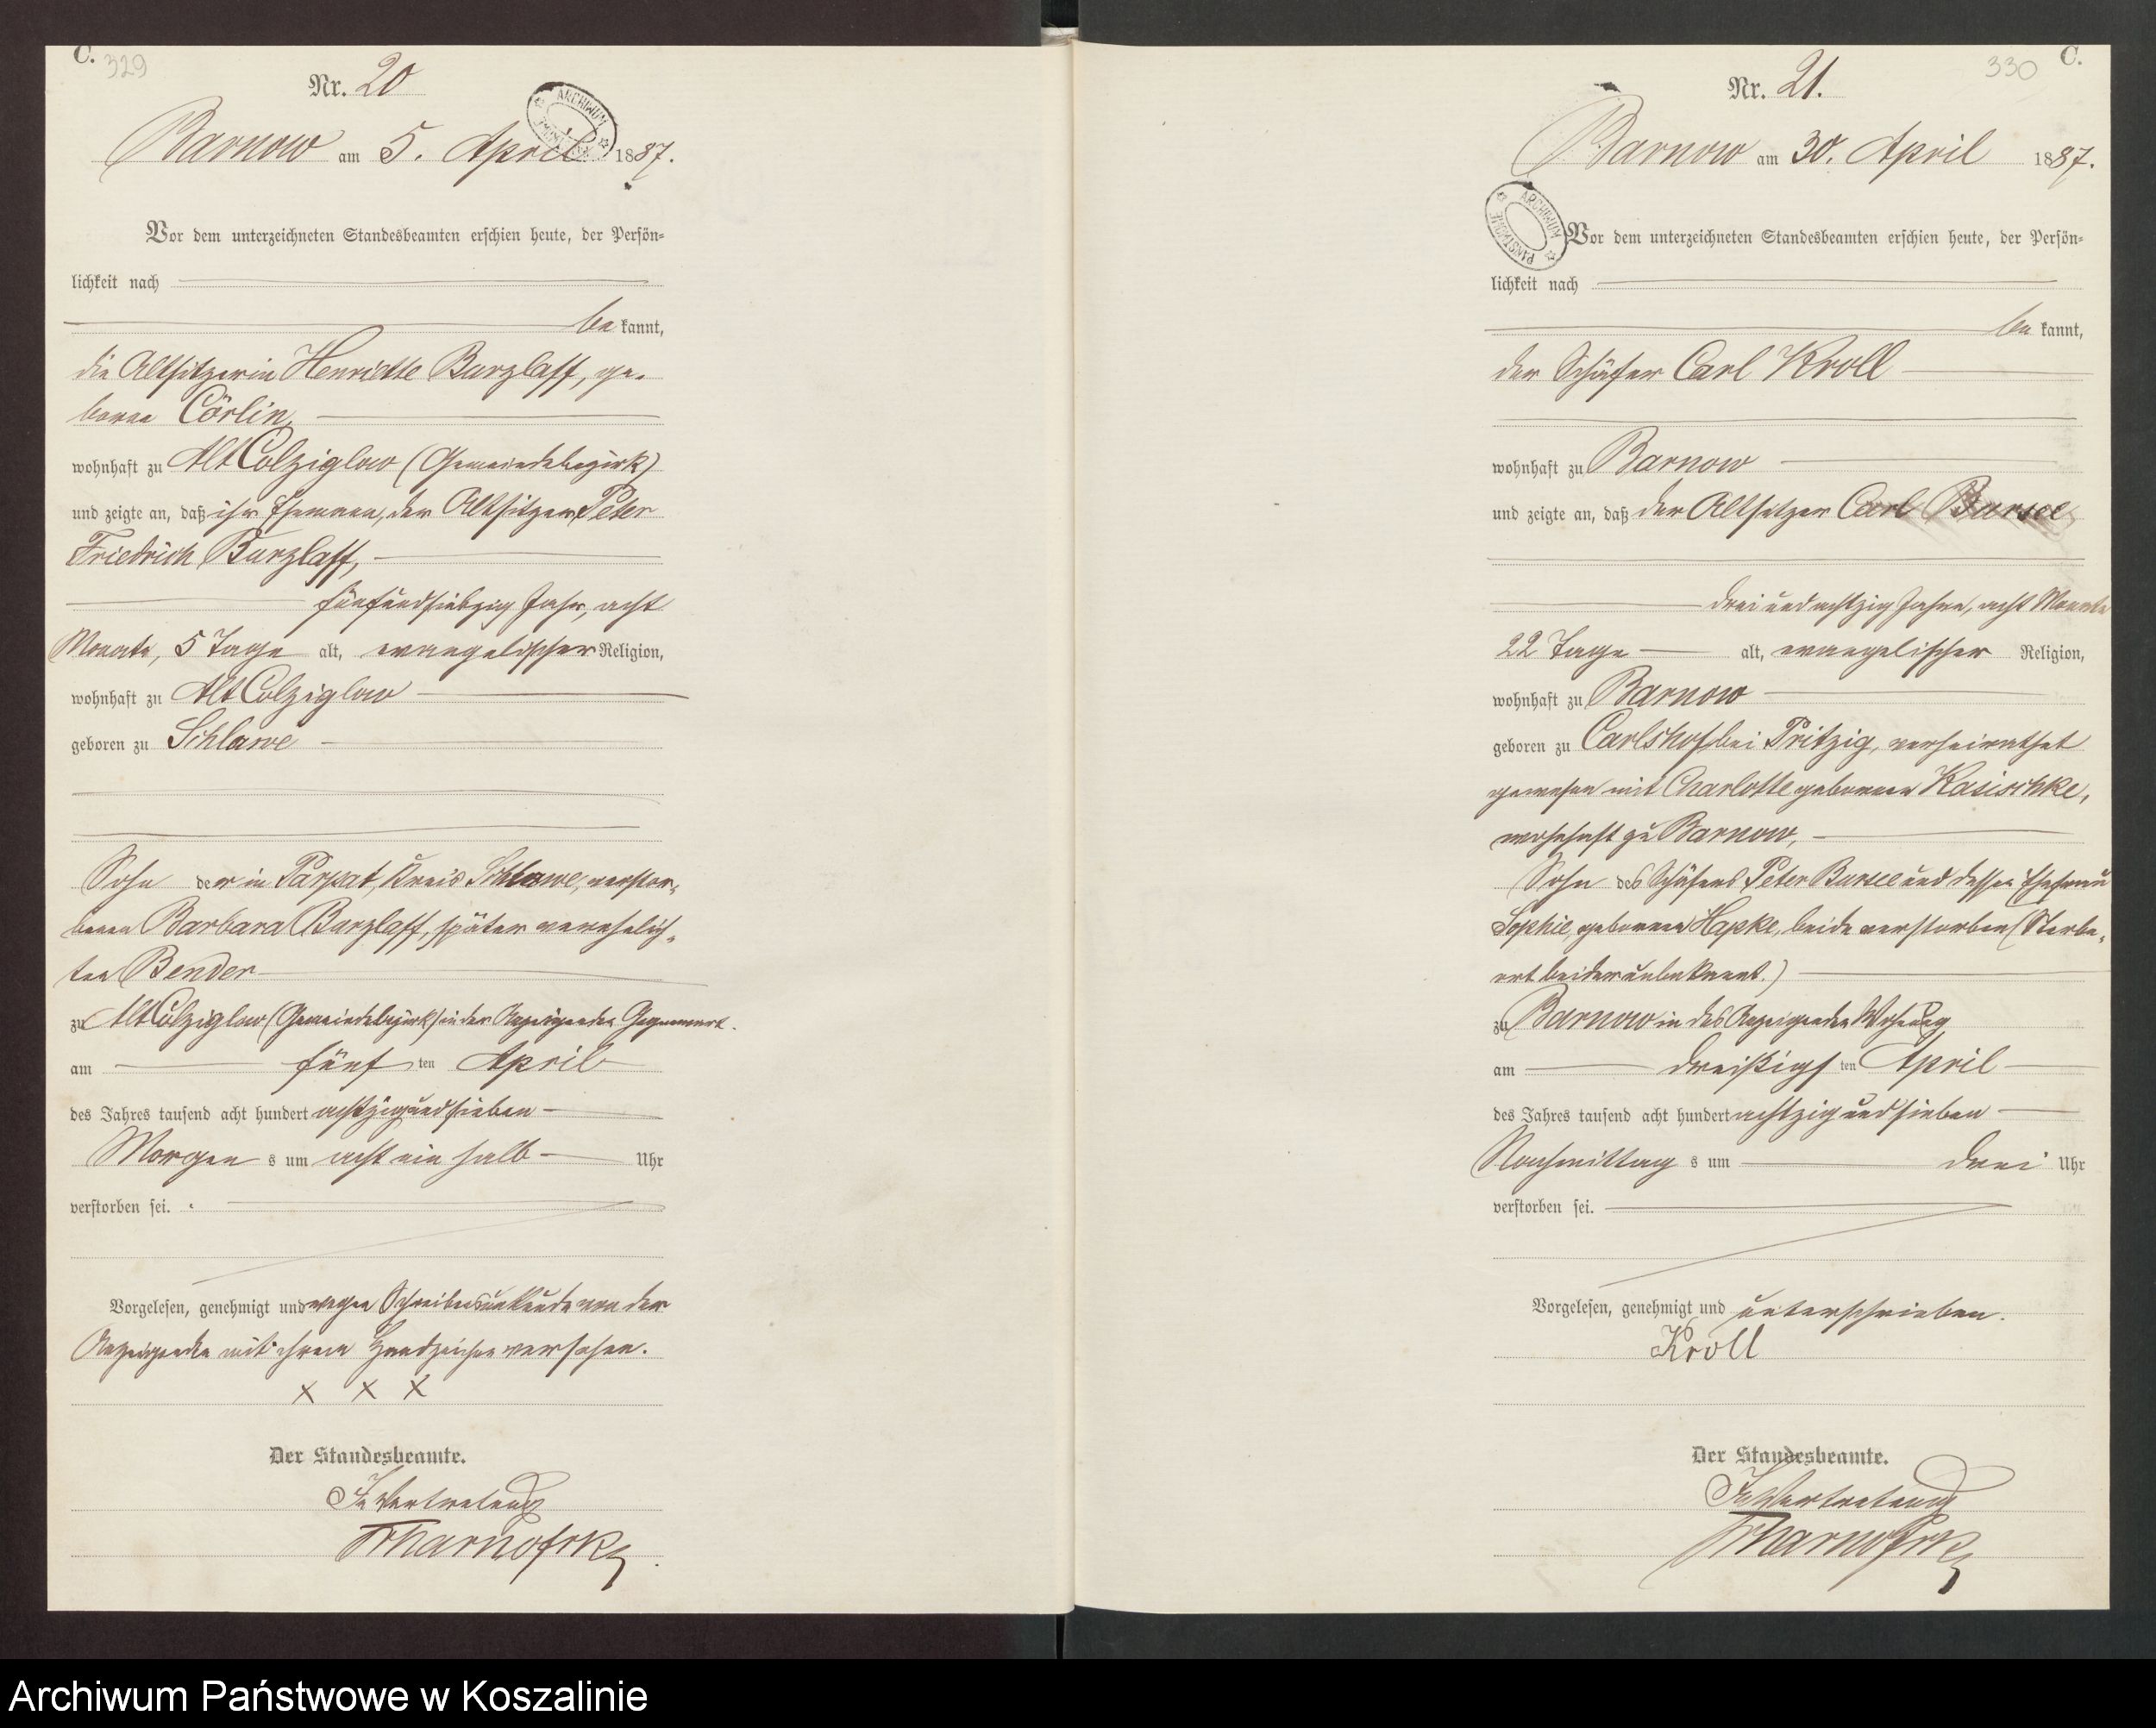 C. 329
Nr. 20
ARCHIWUM
Barnow am 5. April 1887.
Vor dem unterzeichneten Standesbeamten erschien heute, der Persön-
lichkeit nach
be kannt,
die Altsitzerin Henriette Burzlaff, ge-
borne Cörlin,
wohnhaft zu Alt Colziglow (Gemeindebezirk)
und zeigte an, daß ihr Ehemann, der Altsitzer Peter
Friedrich Burzlaff,
fünfundsiebzig Jahr, acht
Monate, 5 Tage alt, evangelischer Religion,
wohnhaft zu Alt Colziglow
geboren zu Schlawe
Sohn der in Parpat, Kreis Schlawe, verstor-
benen Barbara Burzlaff, später verehelich-
ten Bender
zu Alt Colziglow (Gemeindebezirk) in der Anzeigenden Gegenwart.
am fünf ten April
des Jahres tausend acht hundert achtzig und sieben
Morgen s um acht ein halb Uhr
verstorben sei.
Vorgelesen, genehmigt und wegen Schreibensunkunde von der
Anzeigenden mit ihrem Handzeichen versehen.
x x x
Der Standesbeamte.
In Vertretung
330 C.
Nr. 21.
Barnow am 30. April 1887.
ARCHIWUM PAŃSTWOWE
Vor dem unterzeichneten Standesbeamten erschien heute, der Persön-
lichkeit nach
be kannt,
der Schäfer Carl Kroll
wohnhaft zu Barnow
und zeigte an, daß der Altsitzer Carl Bursee
drei und achtzig Jahre, acht Monate
22 Tage alt, evangelischer Religion,
wohnhaft zu Barnow
geboren zu Carlshof bei Pritzig, verheirathet
gewesen mit Charlotte geborenen Kasischke,
wohnhaft zu Barnow,
Sohn des Schäfers Peter Bursee und dessen Ehefrau
Sophie, geborenen Hapke, beide verstorben (Sterbe-
ort beider unbekannt.)
zu Barnow in des Anzeigenden Wohnung
am dreißigs ten April
des Jahres tausend acht hundert achtzig und sieben
Nachmittag s um drei Uhr
verstorben sei.
Vorgelesen, genehmigt und unterschrieben.
Kroll
Der Standesbeamte.
In Vertretung
Archiwum Państwowe w Koszalinie